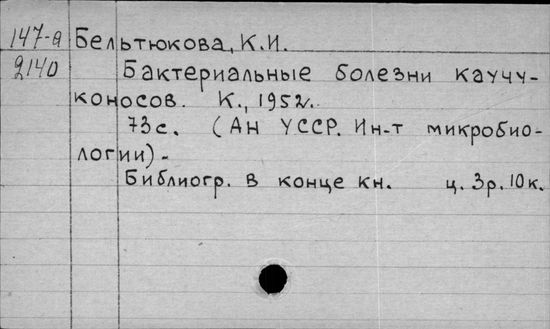 147-а Бельтюкова, К.И.
2140 Бактериальные болезни каучу-
коносов. К., 1952.
73с. (Ан УССР. Ин-т микробио-
логии)-
Библиогр. в конце кн. ц. 3р. 10к.